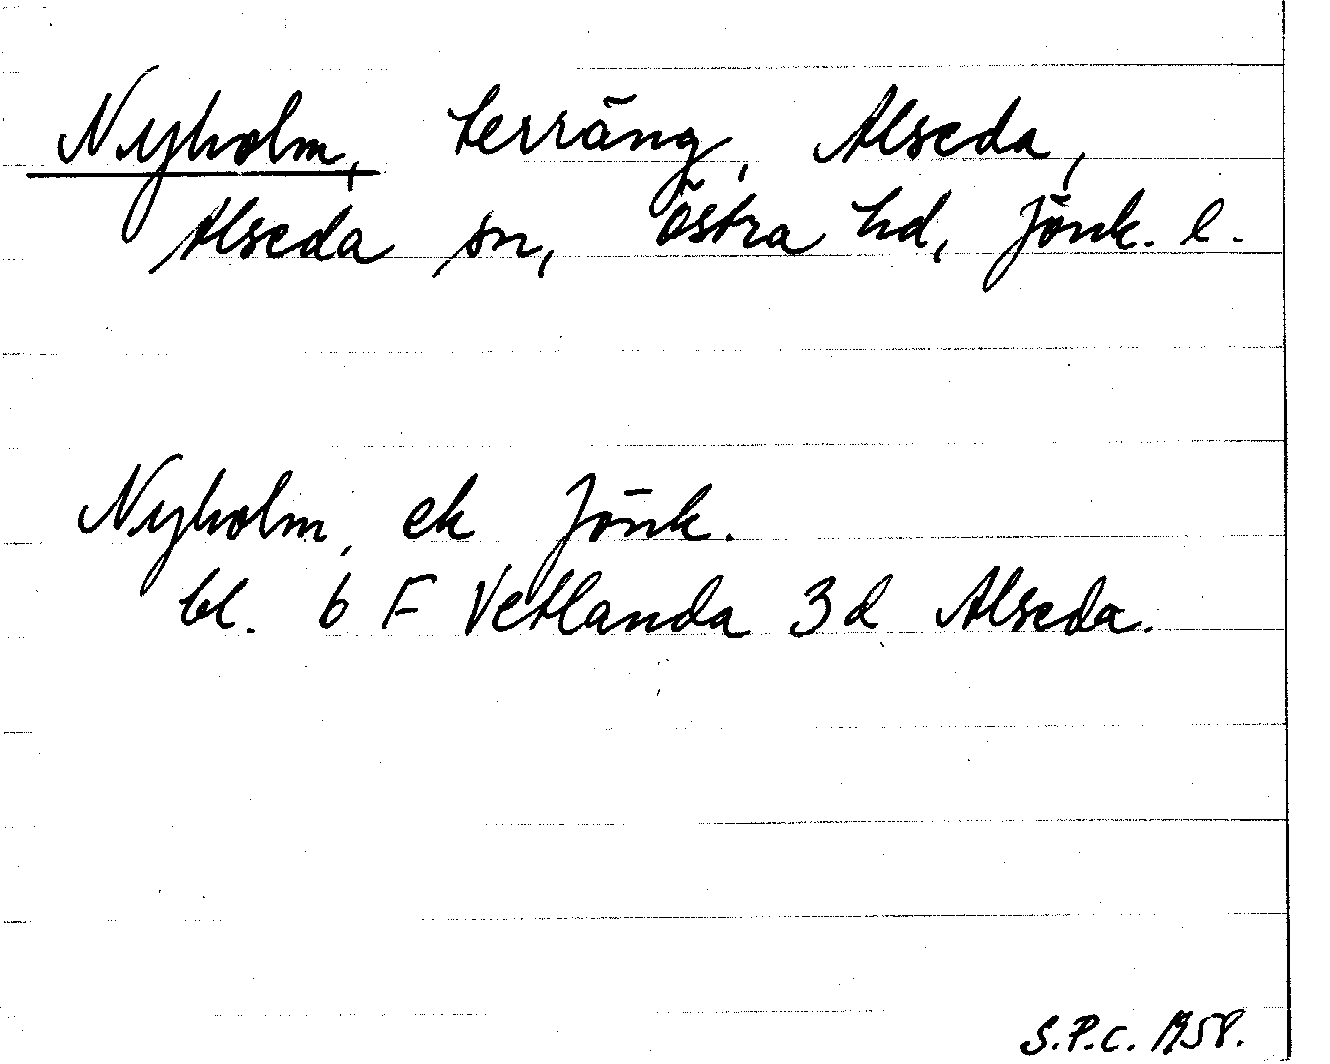 Nyholm, terräng, Alseda,
Alseda sn, Östra hd, Jönk. l.
Nyholm, ek Jönk.
bl. 6 F Vetlanda 3d Alseda.
S.P.C. 1958.